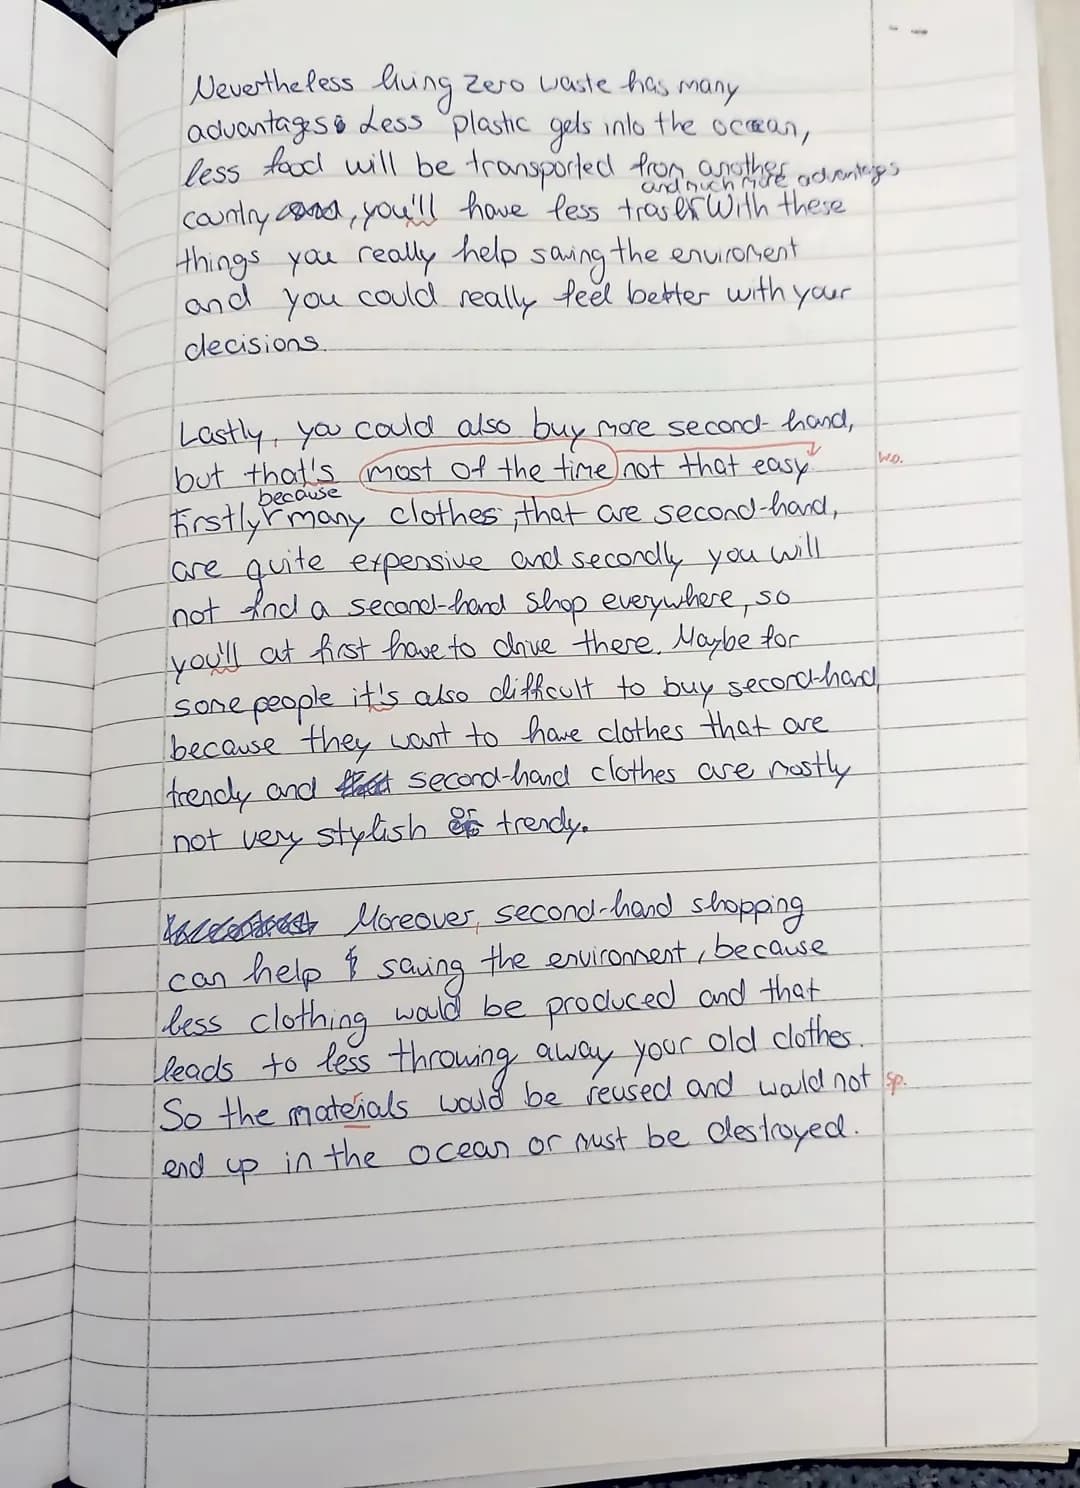 Nevertheless living zero waste has many
advantages: Less plastic gets into the ocean,
less food will be transported from another
and much more advantages
country, you'll have less trash. With these
things you really help saving the enviroment
and you could really feel better with your
decisions.
Lastly, you could also buy more second-hand,
but that's most of the time not that easy
wo.
because
firstly many clothes, that are second-hand,
are quite expensive and secondly you will
not find a second-hand shop everywhere, so
you'll at first have to drive there. Maybe for
some people it's also difficult to buy second-hand,
because they want to have clothes that are
trendy and second-hand clothes are mostly
not very stylish or trendy.
Moreover, second-hand shopping
can help saving the environment, because
less clothing would be produced and that
leads to less throwing away your old clothes.
So the materials would be reused and would not
sp.
end up in the ocean or must be destroyed.